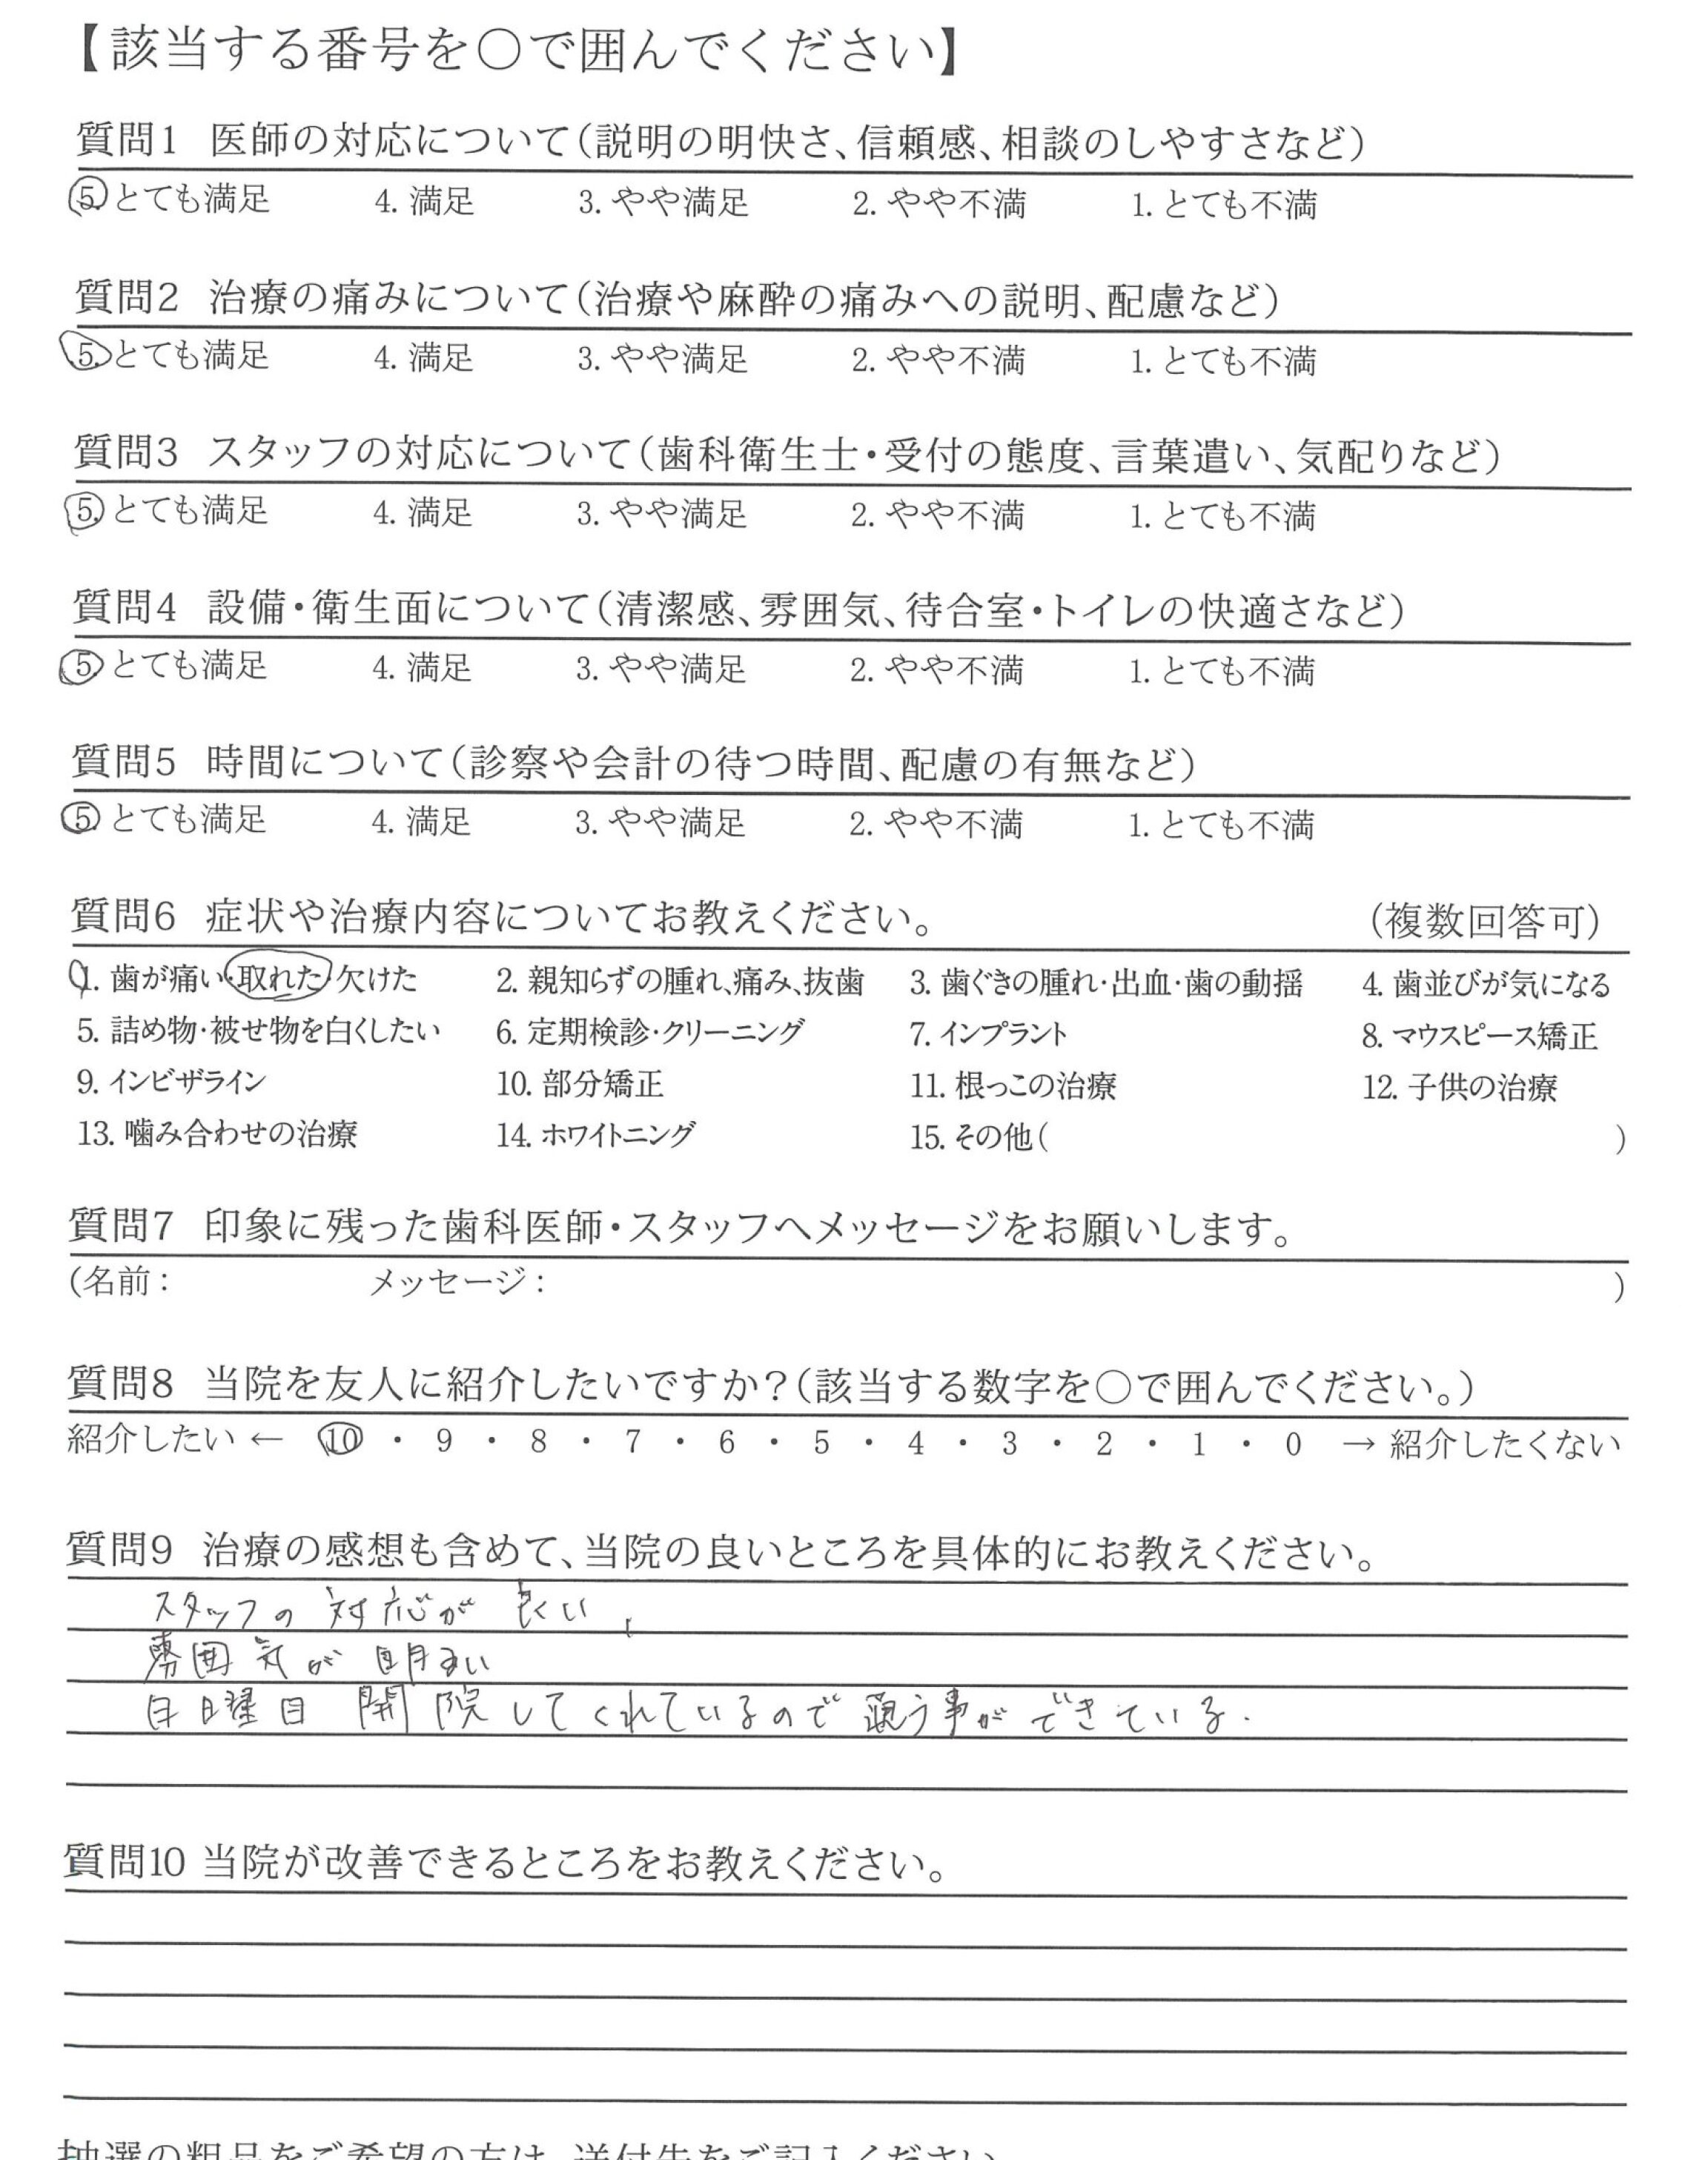 【該当する番号を○で囲んでください】
質問1 医師の対応について（説明の明快さ、信頼感、相談のしやすさなど）
5. とても満足 4. 満足 3. やや満足 2. やや不満 1. とても不満
質問2 治療の痛みについて（治療や麻酔の痛みへの説明、配慮など）
5. とても満足 4. 満足 3. やや満足 2. やや不満 1. とても不満
質問3 スタッフの対応について（歯科衛生士・受付の態度、言葉遣い、気配りなど）
5. とても満足 4. 満足 3. やや満足 2. やや不満 1. とても不満
質問4 設備・衛生面について（清潔感、雰囲気、待合室・トイレの快適さなど）
5. とても満足 4. 満足 3. やや満足 2. やや不満 1. とても不満
質問5 時間について（診察や会計の待つ時間、配慮の有無など）
5. とても満足 4. 満足 3. やや満足 2. やや不満 1. とても不満
質問6 症状や治療内容についてお教えください。 （複数回答可）
1. 歯が痛い・取れた・欠けた 2. 親知らずの腫れ、痛み、抜歯 3. 歯ぐきの腫れ・出血・歯の動揺 4. 歯並びが気になる
5. 詰め物・被せ物を白くしたい 6. 定期検診・クリーニング 7. インプラント 8. マウスピース矯正
9. インビザライン 10. 部分矯正 11. 根っこの治療 12. 子供の治療
13. 噛み合わせの治療 14. ホワイトニング 15. その他（ ）
質問7 印象に残った歯科医師・スタッフへメッセージをお願いします。
（名前： メッセージ： ）
質問8 当院を友人に紹介したいですか？（該当する数字を○で囲んでください。）
紹介したい ← 10 ・ 9 ・ 8 ・ 7 ・ 6 ・ 5 ・ 4 ・ 3 ・ 2 ・ 1 ・ 0 → 紹介したくない
質問9 治療の感想も含めて、当院の良いところを具体的にお教えください。
スタッフの対応が良い、
雰囲気が明るい
日曜日 開院してくれているので 通う事ができている.
質問10 当院が改善できるところをお教えください。
抽選の粗品をご希望の方は、送付先をご記入ください。